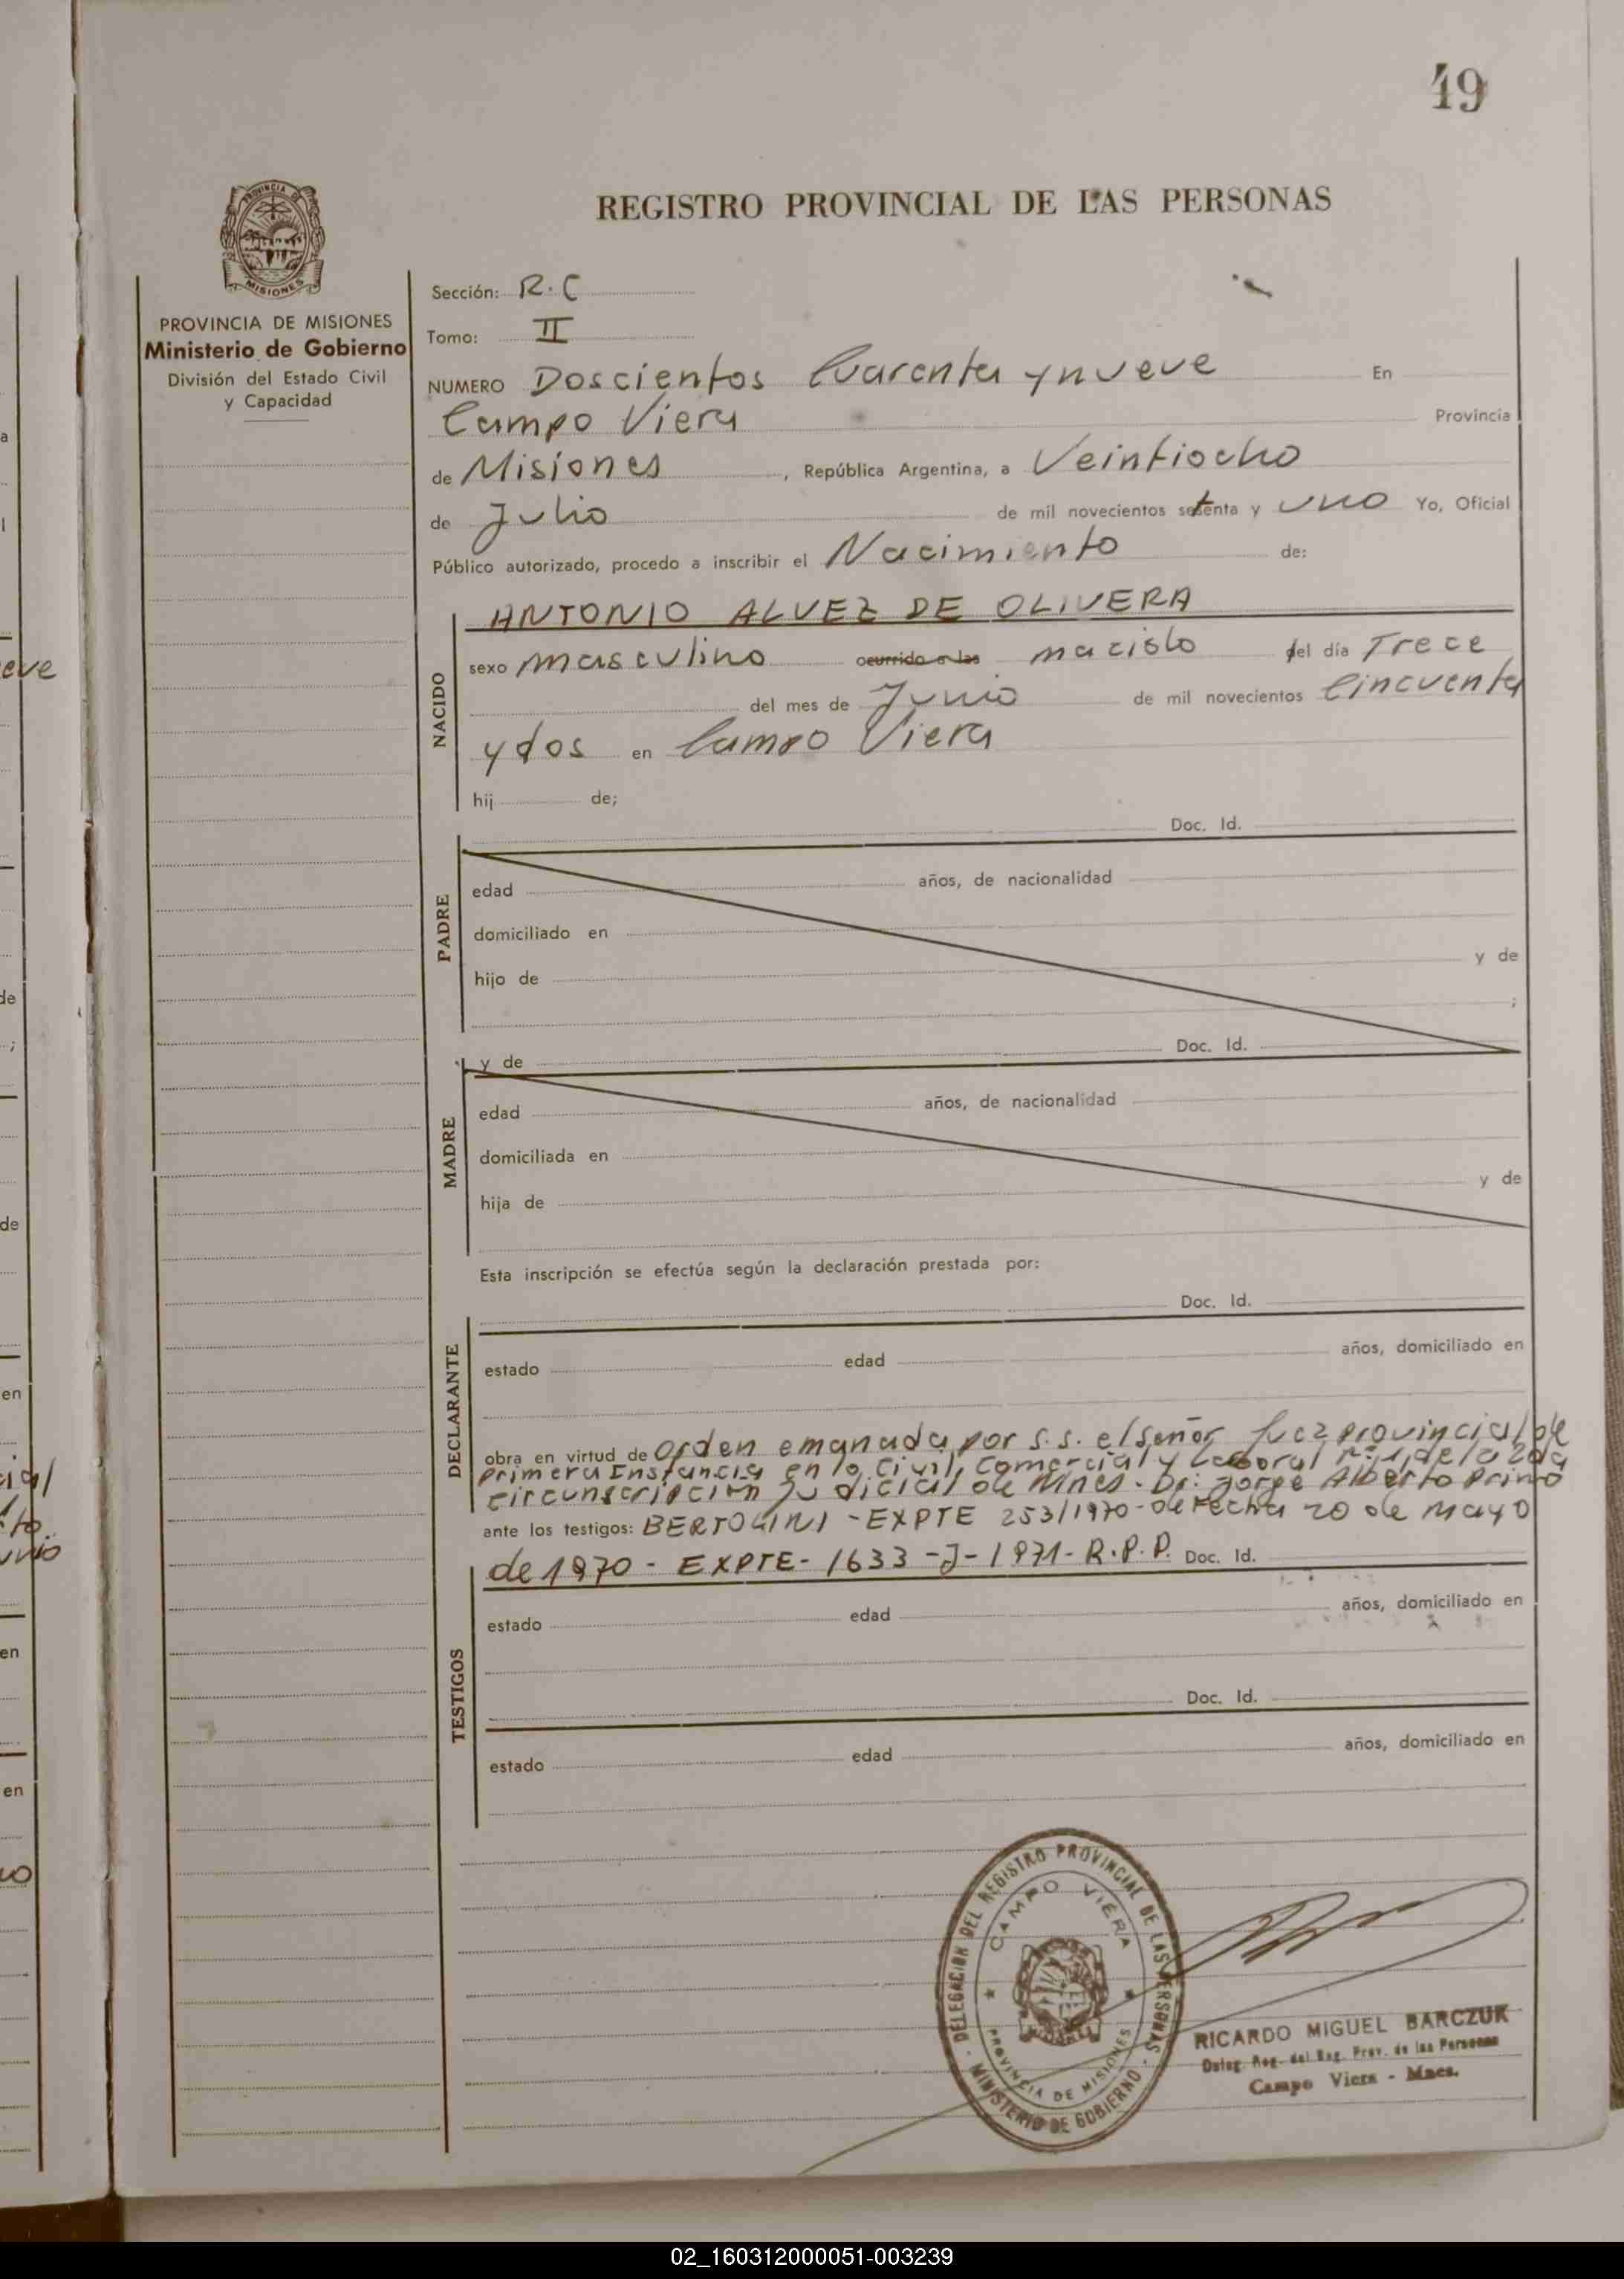 49
REGISTRO PROVINCIAL DE LAS PERSONAS
PROVINCIA DE MISIONES
Ministerio de Gobierno
División del Estado Civil
y Capacidad
Sección: R.C
Tomo: II
NUMERO Doscientos Cuarenta y nueve En
Campo Viera Provincia
de Misiones, República Argentina, a Veintiocho
de Julio de mil novecientos setenta y uno Yo, Oficial
Público autorizado, procedo a inscribir el Nacimiento de:
NACIDO
ANTONIO ALVEZ DE OLIVERA
sexo masculino ocurrido a las nacido del día Trece
del mes de Junio de mil novecientos Cincuenta
y dos en Campo Viera
hij de;
PADRE
Doc. Id.
edad años, de nacionalidad
domiciliado en
hijo de y de
;
MADRE
y de Doc. Id.
edad años, de nacionalidad
domiciliada en
hija de y de
Esta inscripción se efectúa según la declaración prestada por:
DECLARANTE
Doc. Id.
estado edad años, domiciliado en
obra en virtud de orden emanada por S.S. el señor Juez provincial de
primera Instancia en lo Civil, Comercial y Laboral Nº 1, de la 2da
circunscripcion Judicial de Mnes. Dr: Jorge Alberto Primo
ante los testigos: BERTOLINI - EXPTE 253/1970 - de fecha 20 de mayo
de 1970 - EXPTE - 1633 - J - 1971 - R.P.P. Doc. Id.
TESTIGOS
estado edad años, domiciliado en
Doc. Id.
estado edad años, domiciliado en
DELEGACION DEL REGISTRO PROVINCIAL DE LAS PERSONAS
CAMPO VIERA
PROVINCIA DE MISIONES
MINISTERIO DE GOBIERNO
RICARDO MIGUEL BARCZUK
Deleg. Reg. del Reg. Prov. de las Personas
Campo Viera - Mnes.
02_160312000051-003239